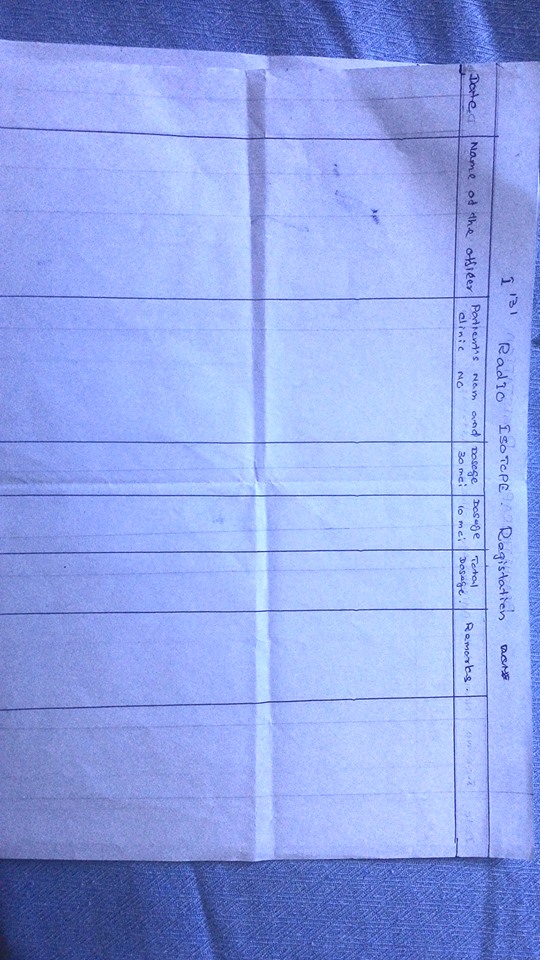 I¹³¹ Radio ISOTOPE Ragistation
Date
Name of the officer
Patient's Nam and
clinic No
Dosage
30 mci
Dosage
10 mci
Total
Dosage.
Remarks.